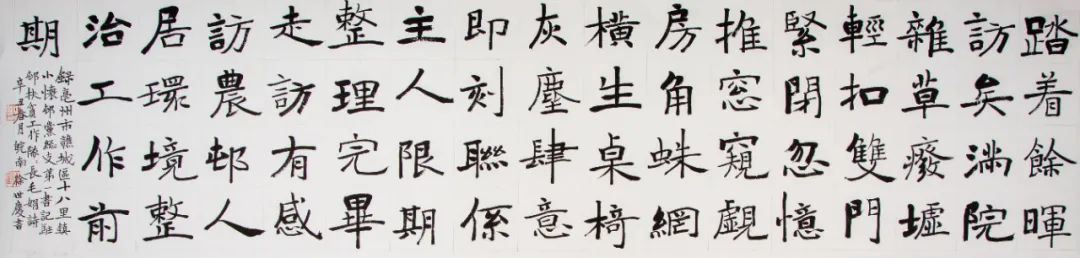 踏着餘暉
訪矣滿院
雜草癈墟
輕扣雙門
緊閉忽憶
推窓窺覷
房角蛛網
橫生桌椅
灰塵肆意
即刻聯係
主人限期
整理完畢
走訪有感
訪農邨人
居環境整
治工作前
期
錄亳州市譙城區十八里鎮
小懷邨黨總支第一書記駐
邨扶貧工作隊長毛媚詩
辛丑春月皖南徐世慶書